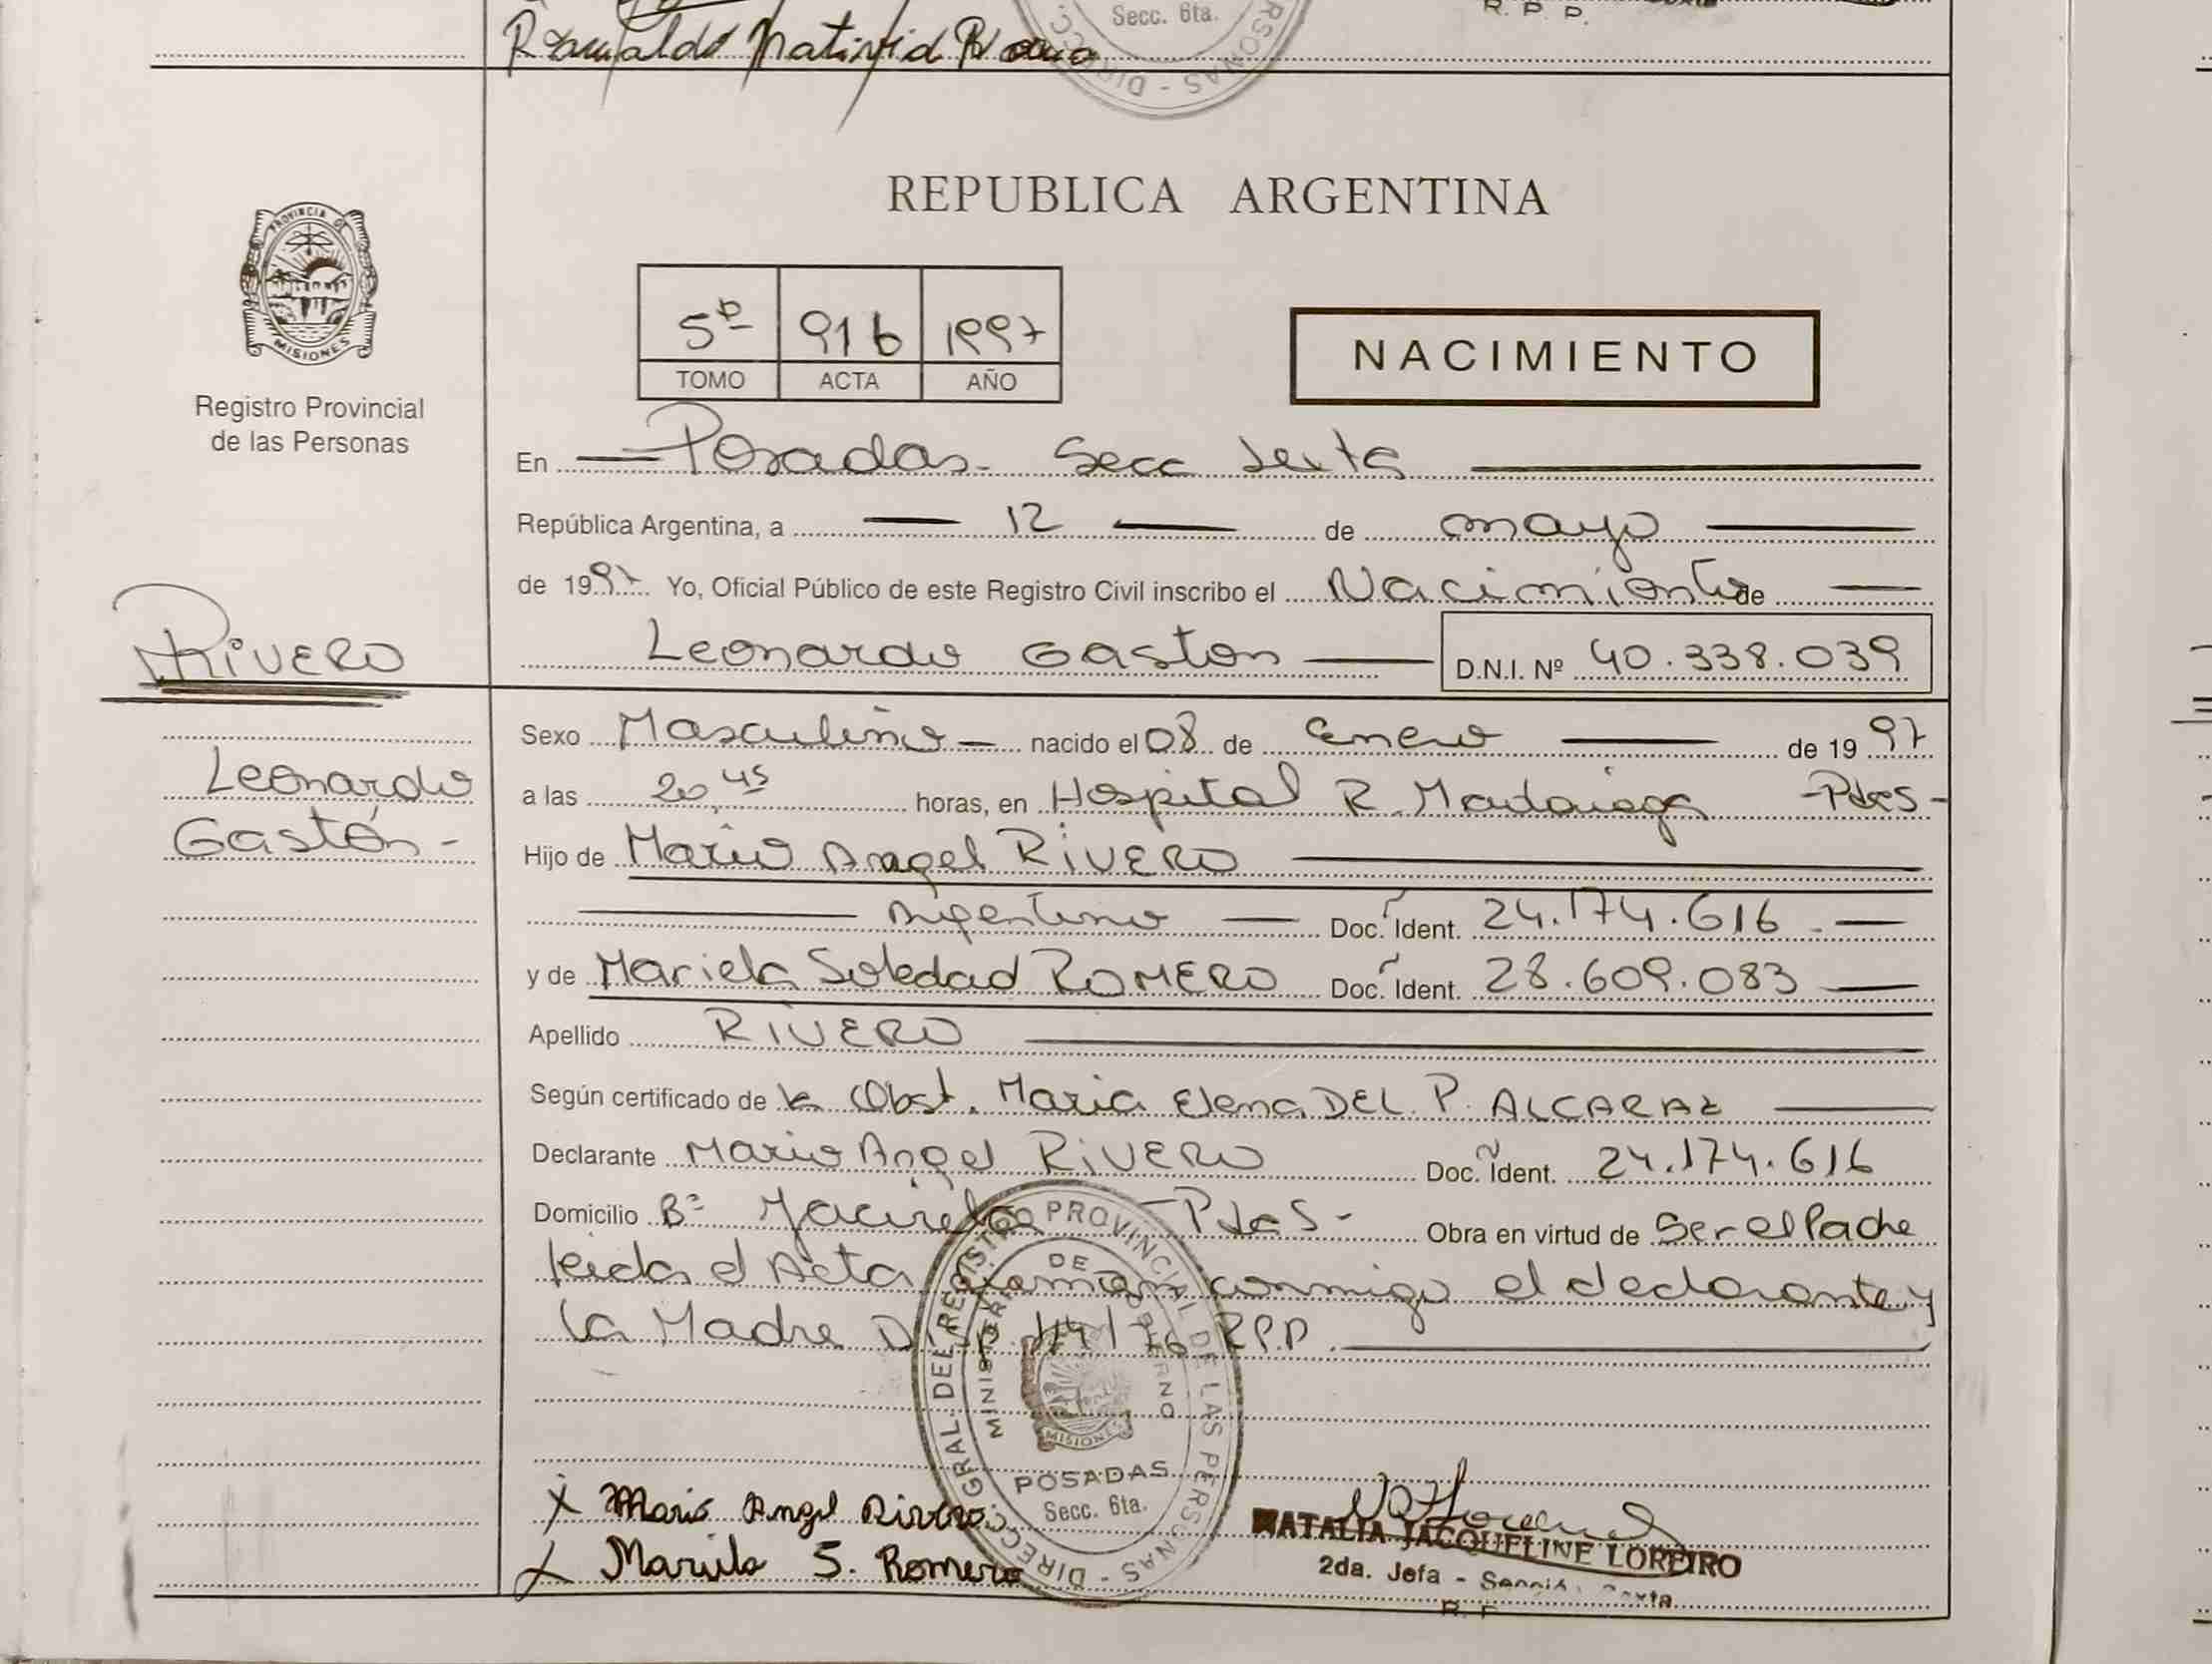 Secc. 6ta.
R. P. P.
DIRECC
RSONAS - DIREC
REPUBLICA ARGENTINA
PROVINCIA DE
MISIONES
Registro Provincial
de las Personas
5º 916 1997
TOMO ACTA AÑO
NACIMIENTO
En Posadas - Secc Sexta
República Argentina, a 12 de mayo
de 1997. Yo, Oficial Público de este Registro Civil inscribo el Nacimiento de
RIVERO
Leonardo Gaston D.N.I. Nº 40.338.039
Leonardo
Gastón -
Sexo Masculino nacido el 08 de Enero de 19 97
a las 20,45 horas, en Hospital R. Madariaga - Pdas -
Hijo de Mario Angel RIVERO
Argentino Doc. Ident. 24.174.616
y de Mariela Soledad ROMERO Doc. Ident. 28.609.083
Apellido RIVERO
Según certificado de la Obst. Maria Elena DEL P. ALCARAZ
Declarante Mario Angel RIVERO Doc. Ident. 24.174.616
Domicilio Bº Yacireta - Pdas - Obra en virtud de Ser el Padre
leida el Acta firman conmigo el declarante y
la Madre Disp 114/76 RPP.
DIRECC. GRAL. DEL REGISTRO PROVINCIAL DE LAS PERSONAS
MINISTERIO DE GOBIERNO
MISIONES
POSADAS
Secc. 6ta.
X Mario Angel Rivero
X Mariela S. Romero
NATALIA JACQUELINE LOREIRO
2da. Jefa - Sección Sexta